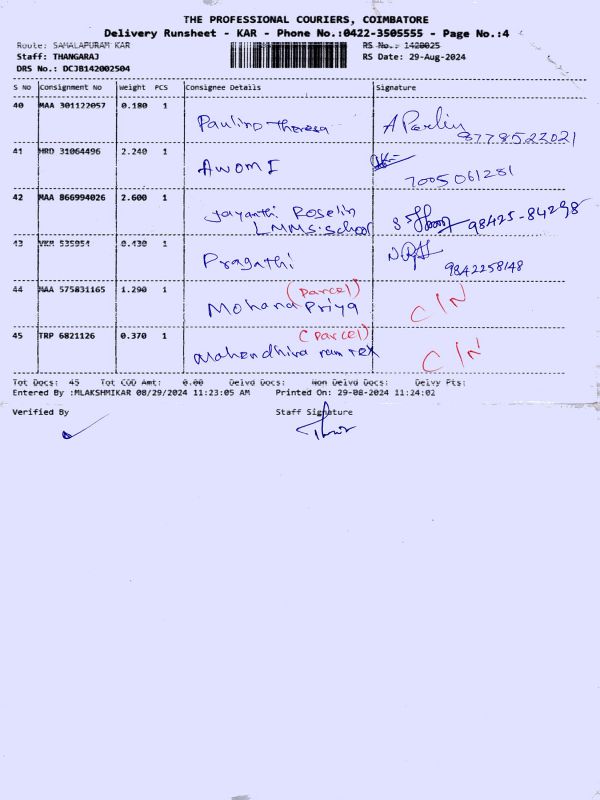 THE PROFESSIONAL COURIERS, COIMBATORE
Delivery Runsheet - KAR - Phone No.:0422-3505555 - Page No.:4
Route: SAMALAPURAM KAR
RS No.: 1420025
Staff: THANGARAJ
RS Date: 29-Aug-2024
DRS No.: DCJB142002504
S No Consignment No Weight PCS Consignee Details Signature
40 MAA 301122057 0.180 1
Paulino Theresa A Perlin
8778522021
41 MRD 31064496 2.240 1
AWOMI
7005061281
42 MAA 866994026 2.600 1
Jayanthi Roselin
L.M.M.S. School 98425-84298
43 VKM 535954 0.430 1
Pragathi 9842258148
44 MAA 575831165 1.290 1
(Parcel)
Mohana Priya C/N
45 TRP 6821126 0.370 1
(Parcel)
Mahendhira ram tex C/N
Tot Docs: 45 Tot COD Amt: 0.00 Delvd Docs: Non Delvd Docs: Delvy Pts:
Entered By :MLAKSHMIKAR 08/29/2024 11:23:05 AM Printed On: 29-08-2024 11:24:02
Verified By Staff Signature